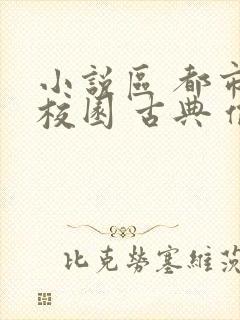 小說區 都市
校園 古典
比克勞塞維茨